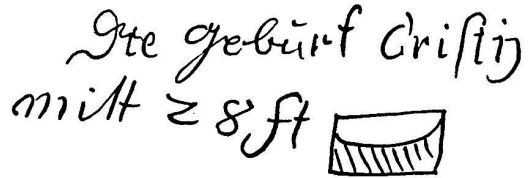 Die geburt Cristij
mitt 2 8 ft